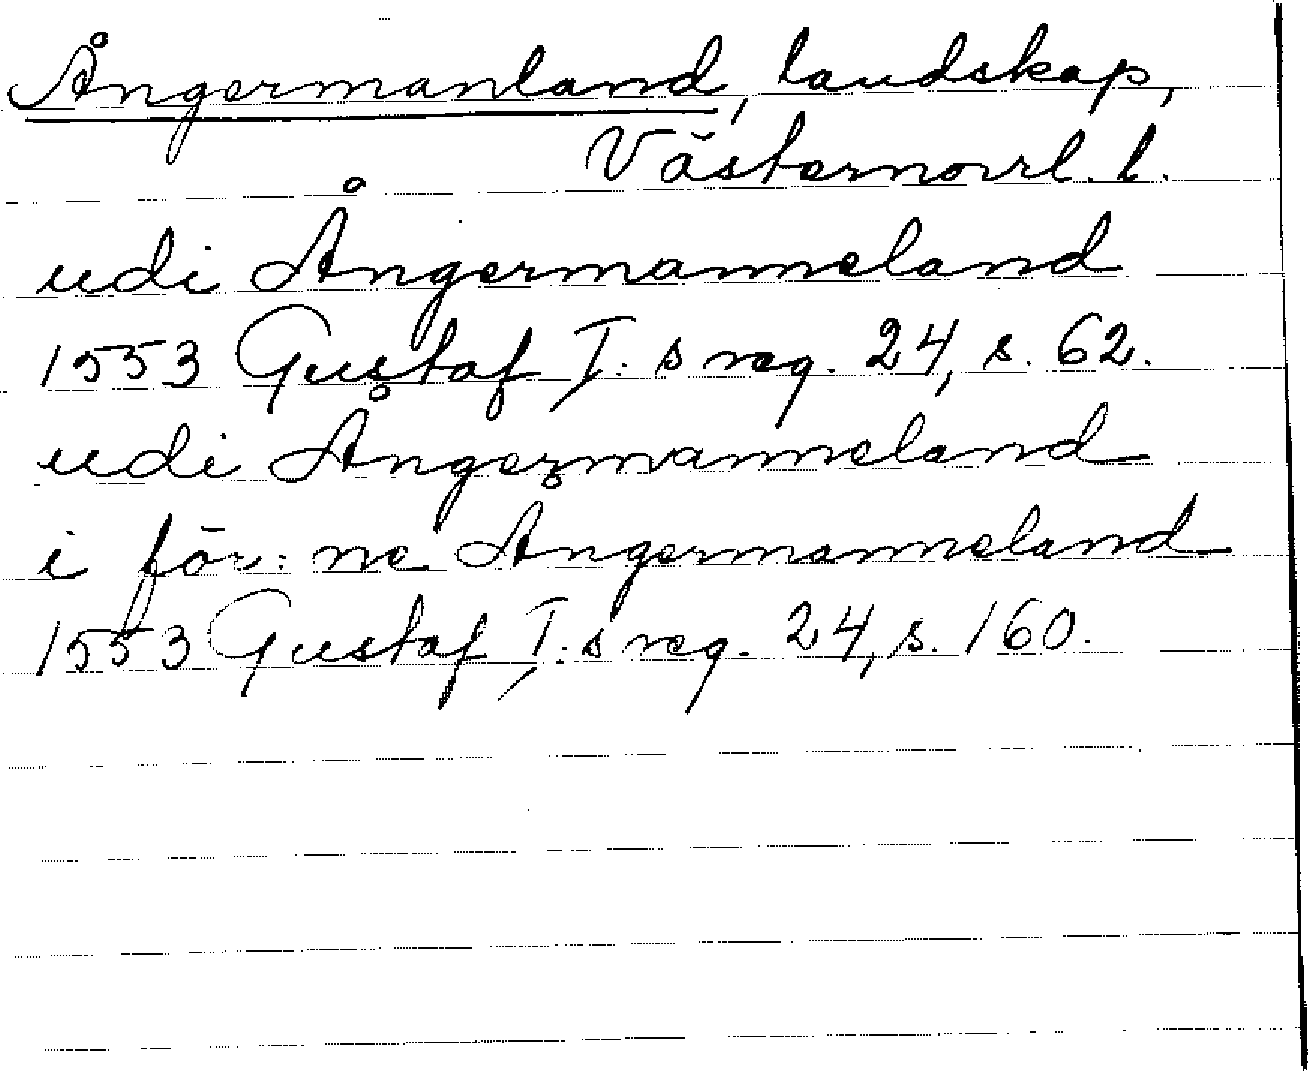 Ångermanland, landskap,
Västernorrl. l.
udi Ångermanneland
1553 Gustaf I: s reg. 24, s. 62.
udi Ångermanneland
i för: ne Angermanneland
1553 Gustaf I: s reg. 24, s. 160.